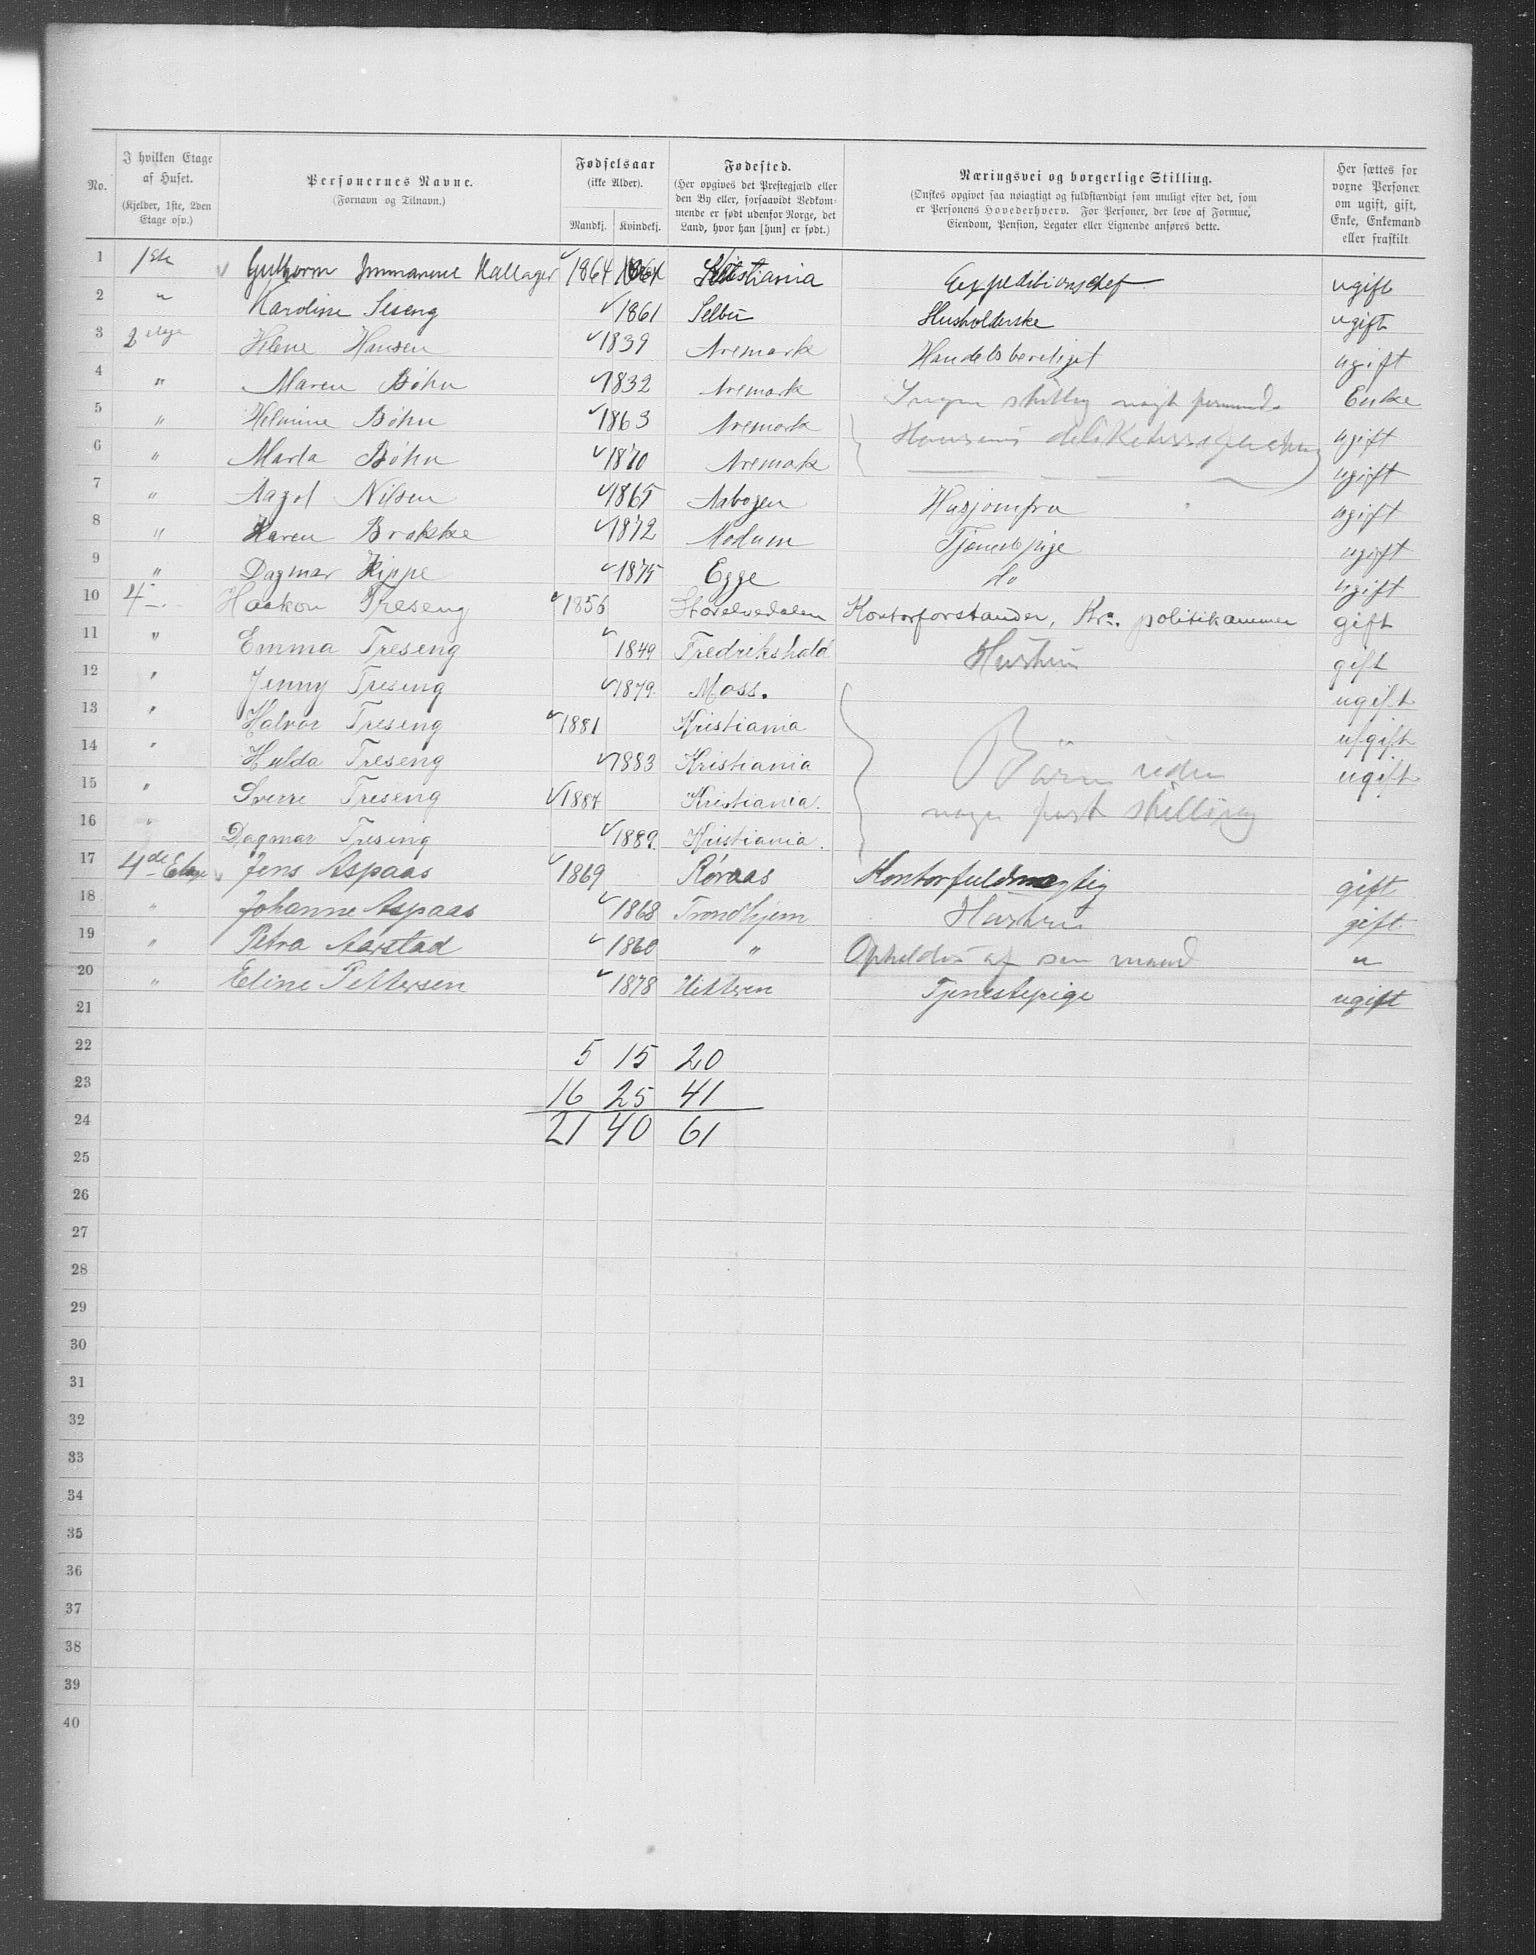 No.
I hvilken Etage
af Huset.
(Kjelder, 1ste, 2den
Etage osv.)
Personernes Navne.
(Fornavn og Tilnavn.)
Fødselsaar
(ikke Alder).
Mandkj. Kvindekj.
Fødested.
(Her opgives det Prestegjæld eller
den By eller, forsaavidt Vedkom-
mende er født udenfor Norge, det
Land, hvor han [hun] er født.)
Næringsvei og borgerlige Stilling.
(Ønskes opgivet saa nøiagtigt og fuldstændigt som muligt efter det, som
er Personens Hovederhverv. For Personer, der leve af Formue,
Eiendom, Pension, Legater eller Lignende anføres dette.
Her sættes for
voxne Personer
om ugift, gift,
Enke, Enkemand
eller fraskilt
1 1 Ete Guthorm Immanuel Kallager 1864 Kristiania Expeditionschef ugift
2 " Karoline Liseng 1861 Selbu Husholderske ugift
3 2 Helene Hansen 1839 Aremark Handelsberetiget ugift
4 " Maren Bøhn 1832 Aremark Ingen Enke
5 " Helmine Bøhn 1863 Aremark Hansens ugift
6 " Marta Bøhn 1870 Aremark ugift
7 " Aagot Nilsen 1865 Husjomfru ugift
8 " Karen Brakke 1872 Modum Tjenestepige ugift
9 " Dagmar Kippe 1875 Egge do ugift
10 4 Haakon Treseng 1856 Storelvedalen Kontorforstander, Kr. politikammer gift
11 " Emma Treseng 1849 Fredrikshald Hustru gift
12 " Jenny Treseng 1879. Moss. ugift
13 " Halvor Treseng 1881 Kristiania ugift
14 " Hulda Treseng 1883 Kristiania Børn uden ugift
15 " Sverre Treseng 1884 Kristiania. nogen fast stilling
16 " Dagmar Treseng 1889. Kristiania.
17 4de Etage Jens Aspaas 1869 Røraas Kontorfuldmægtig gift
18 " Johanne Aspaas 1868 Trondhjem Hustru gift
19 " Petra Aarstad 1860 " Opholdes af sin mand "
20 " Eline Pettersen 1878 Hitteren Tjenestepige ugift
21
22 5 15 20
23 16 25 41
24 21 40 61
25
26
27
28
29
30
31
32
33
34
35
36
37
38
39
40